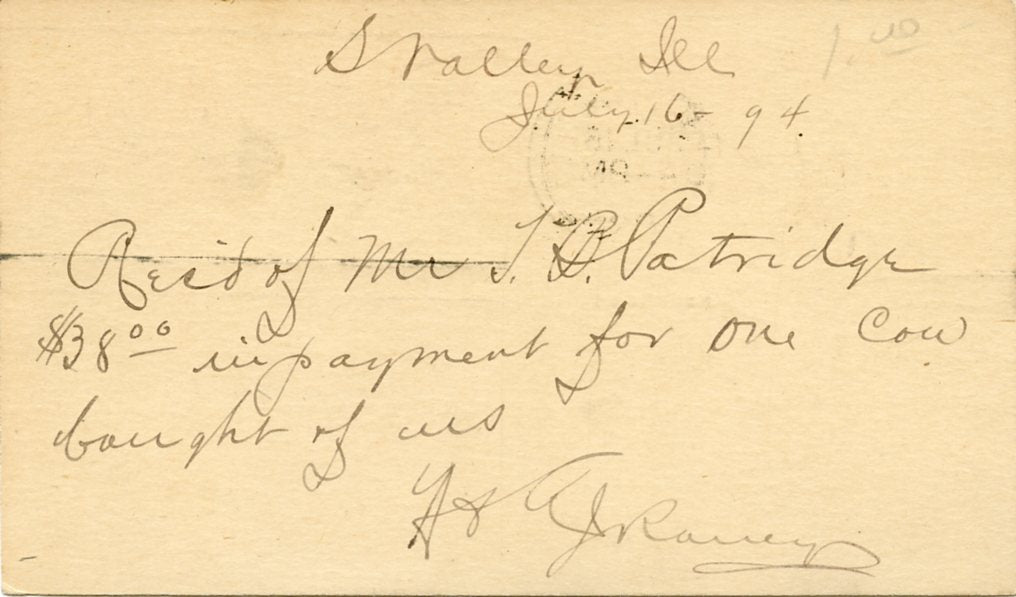 S Valley Ill
1.00
July 16 - 94
Resid of Mr T. B. Patridge
$38 00 in payment for one cow
bought of us